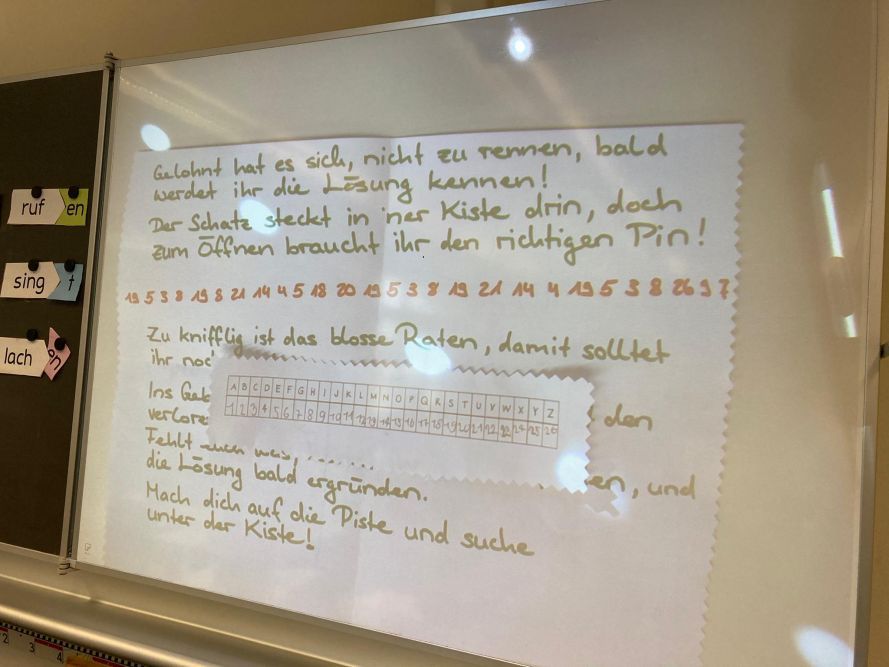 ruf en
sing t
lach en
Gelohnt hat es sich, nicht zu rennen, bald
werdet ihr die Lösung kennen!
Der Schatz steckt in 'ner Kiste drin, doch
zum Öffnen braucht ihr den richtigen Pin!
19 5 3 8 19 8 21 14 4 5 18 20 19 5 3 8 19 21 14 4 19 5 3 8 26 9 7
Zu knifflig ist das blosse Raten, damit solltet
ihr
A B C D E F G H I J K L M N O P Q R S T U V W X Y Z
1 2 3 4 5 6 7 8 9 10 11 12 13 14 15 16 17 18 19 20 21 22 23 24 25 26
Ins den
Fehlt und
die Lösung bald ergründen.
Mach dich auf die Piste und suche
unter der Kiste!
2 3 4